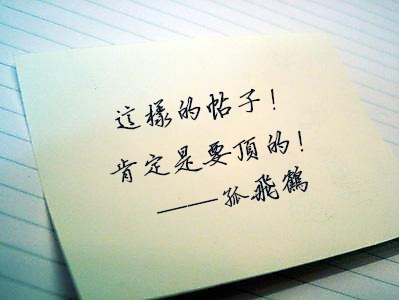 這樣的帖子！
肯定是要頂的！
——孤飛鶴